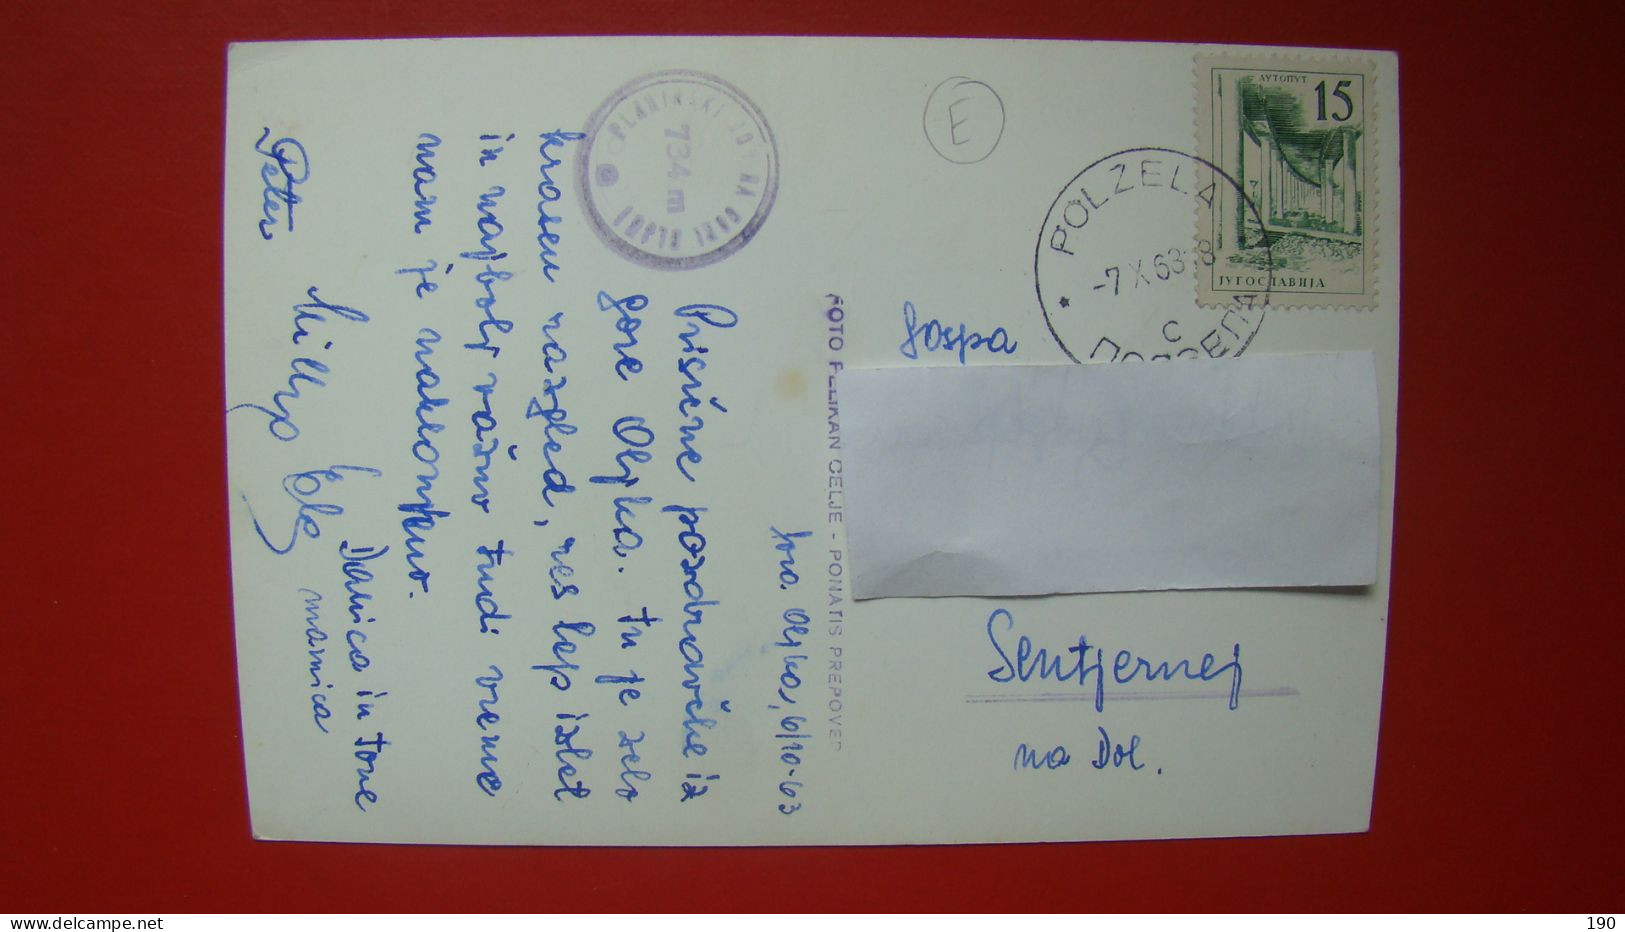 Gora Oljka, 6/10-63
Prisrčne pozdravčke iz
gore Oljka. Tu je zelo
krasen razgled, res lep izlet
in najbolj važno tudi vreme
nam je naklonjeno.
Danica in Tone
mamica
Peter
PLANINSKI DOM NA GORI OLJKI
734 m
FOTO PELIKAN CELJE - PONATIS PREPOVED
E
АУТОПУТ
15
ЈУГОСЛАВИЈА
POLZELA
-7 X 63 18
C
ПОЛЗЕЛА
Gospa
Šentjernej
na Dol.
delcampe.net
190